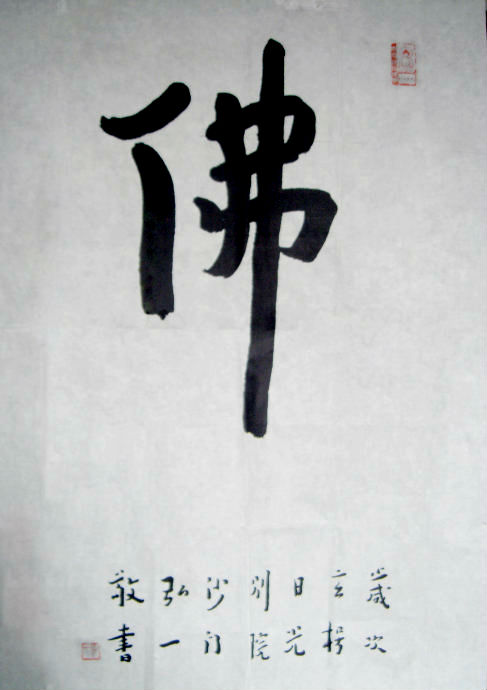 佛
歲次
玄枵
日光
別院
沙门
弘一
敬書